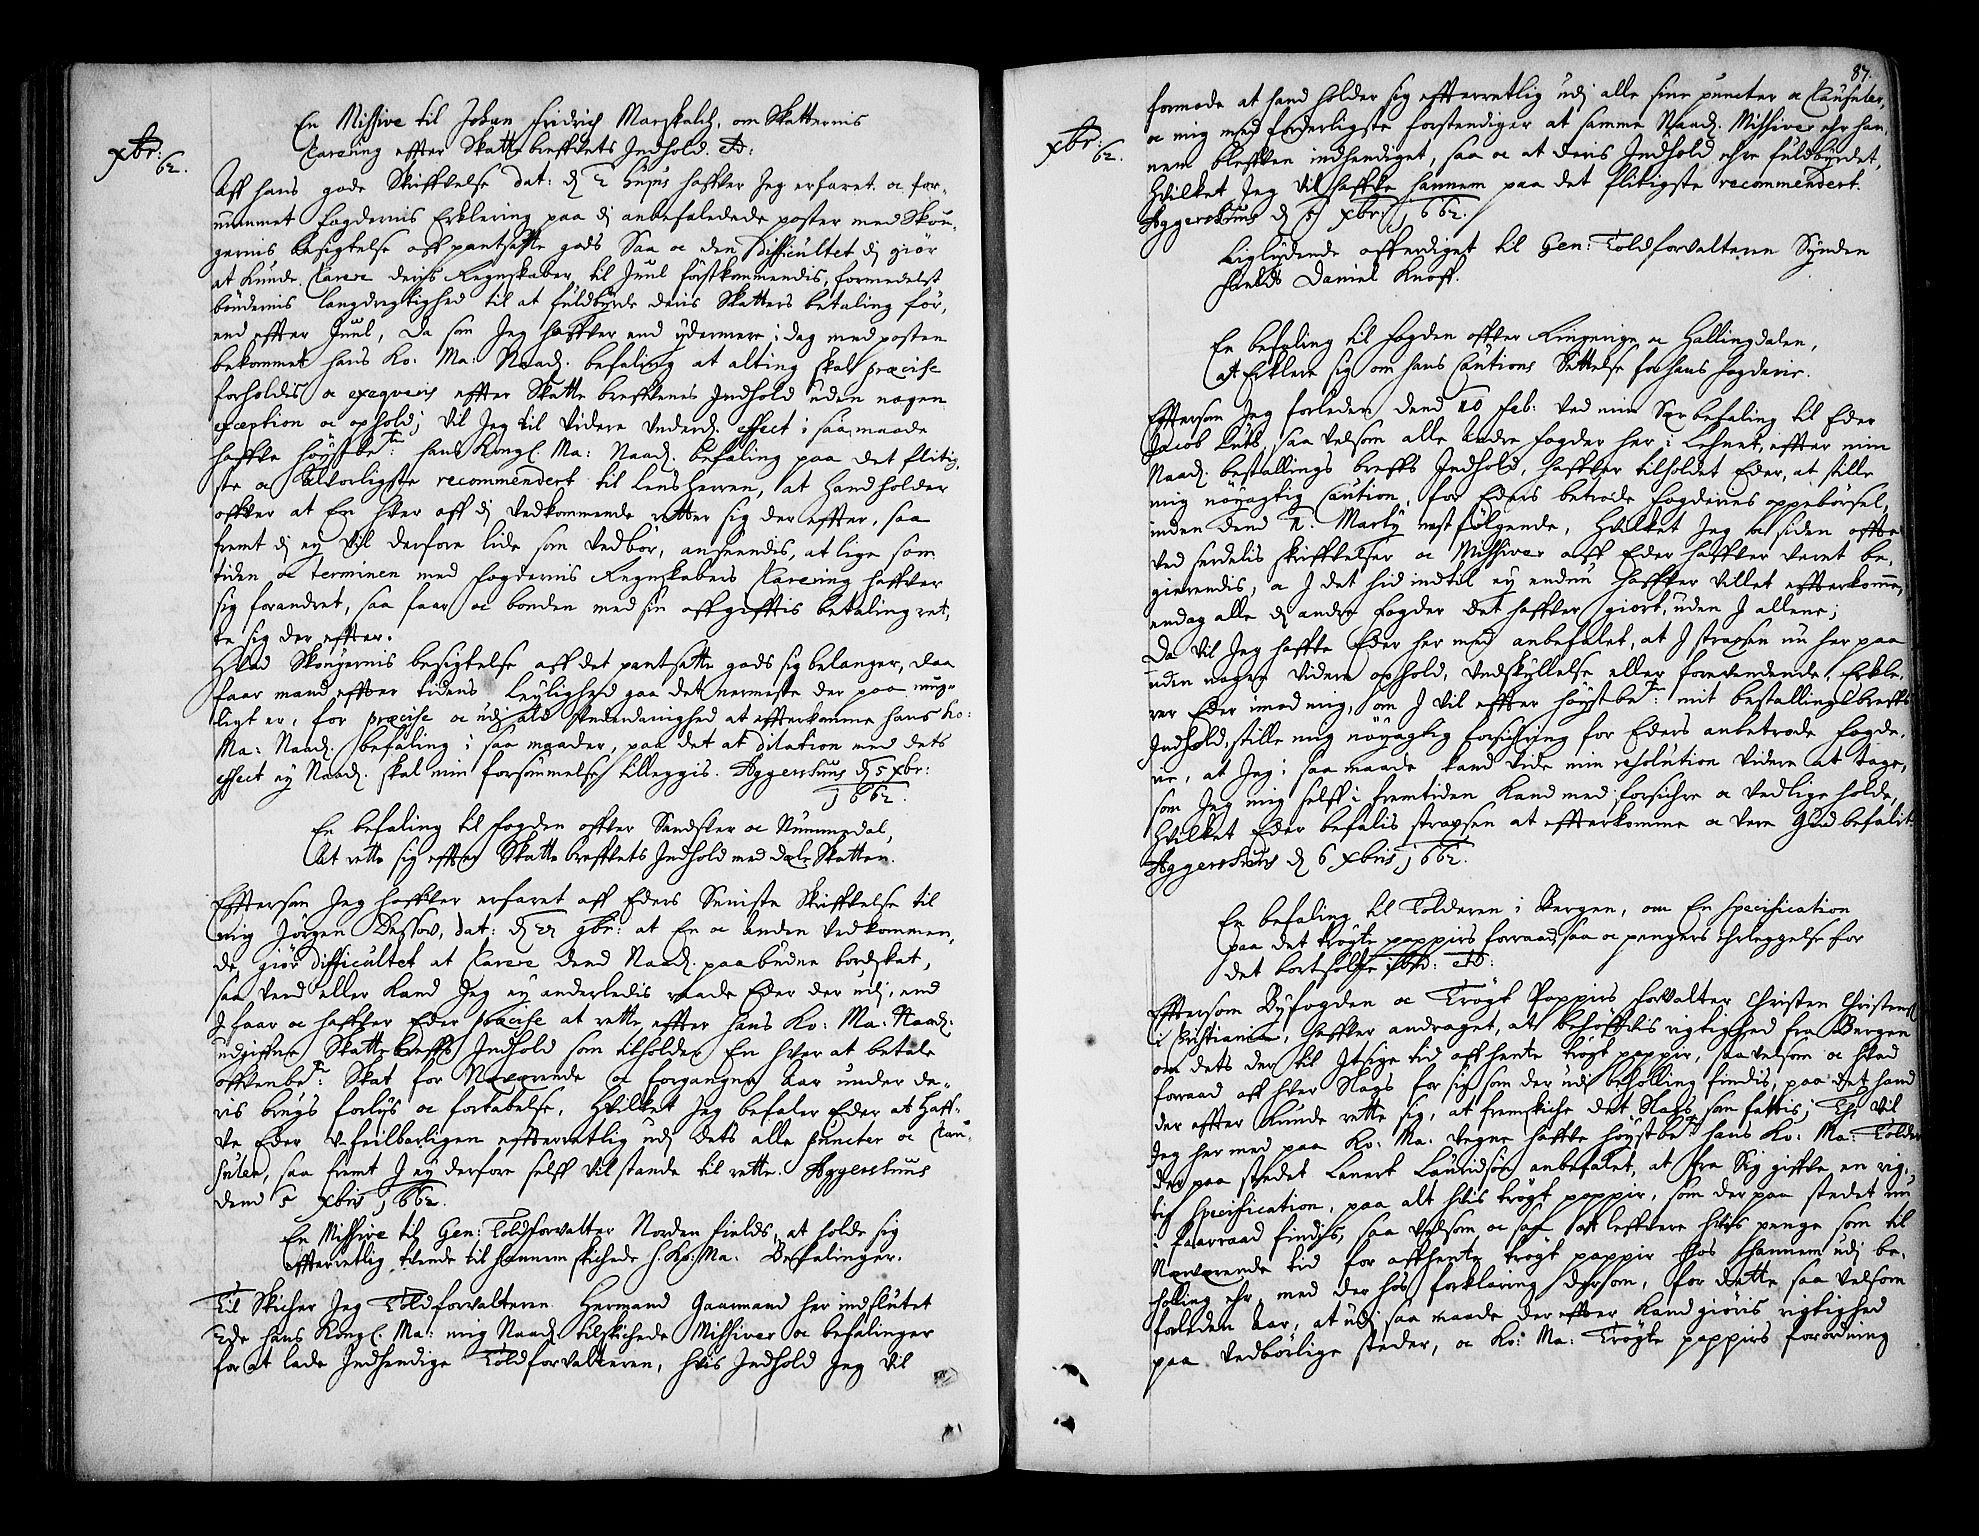 xbr:
62.
En Missive til Johan Friderich Marskalck, om Skatternis
Clarering effter Skattebreffvets Indhold. etc:
Aff hans gode Skriffvelse dat: d. 2 hujus haffver Jeg erfaret oc for-
nummet fogdernis Erklering paa di anbefalede poster med Skou-
gernis besigtelse aff pantsatte gods Saa oc den difficultet di giør
at kunde Clarere deris Regnskaber til Juul førstkommendis, formedelst
bøndernis langdregtighed til at fuldbyrde deris Skatters betaling før,
end effter Juul, Da som Jeg haffver end ydermere i dag med posten
bekommet hans Ko: Ma: Naad. befaling at alting skal præcise
forholdis oc exeqveris effter Skattebreffvenes Indhold uden nogen
exception oc ophold; Vil Jeg til Videre Underd. effect i saa maade
haffve høystbe:te hans Kongl. Ma: Naad. befaling paa det flitig-
ste oc alvorligste recommendert til LensHerren, at Hand holder
offver at En hver aff di Vedkommende retter sig der effter, saa
fremt di ey vil derfore lide som vedbør, anseendis, at lige som
tiden oc terminen med fogdernis Regnskabers Clarering haffver
sig forandret, saa faar oc bonden med sin affgifftis betaling ret-
te sig der effter.
Hvad Skougernis besigtelse aff det pantsatte gods sig belanger, daa
faar mand effter tidens leylighed gaa det nermeste der paa mug-
ligt er, for præcise oc udj ald Underdanighed at effterkomme hans Ko:
Ma: Naad. befaling i saa maader, paa det at dilation med dets
effect ey Naad. skal min forsømmelse tilleggis. Aggershuus d. 5 xbr:
1662.
En befaling til fogden offver Sandsver oc Nummedal,
At rette sig effter Skattebreffvets Indhold med dale Skatten.
Efftersom Jeg haffver erfaret aff Eders Seniste Skriffvelse til
mig Jørgen Dessov, dat: d. 22 9br: at En oc Anden Vedkommen-
de, giør difficultet at Clarere dend Naad. paabudne bordskat,
saa veed eller kand Jeg ey anderledis raade Eder der udj, end
I faar oc haffver Eder præcise at rette effter hans Ko: Ma: Naad.
udgiffne Skattebreffs Indhold som tilholder En hver at betale
offvenbe:te Skat for Nærværende oc forgangne Aar under de-
ris brugs forliis oc fortabelse, Hvilket Jeg befaler Eder at haff-
ve Eder u-feilbarligen effterretlig udj dets alle puncter oc Clau-
suler, saa fremt I ey derfore selff vil stande til rette. Aggershuus
dend 5 xbris 1662.
En Missive til Gen: Toldforvalter Norden fields, at holde sig
effterretlig tvende til hannem skichede H. Ko: Ma: Befalinger.
Til Skicher Jeg Toldforvalteren Hermand Gaarmand her indslutet
tvde hans Kongl. Ma: mig Naad. tilskichede Missiver oc befalinger
for at lade Indhendige Toldforvalteren, hvis Indhold Jeg vil
87.
xbr:
62.
formode at hand holder sig effterretlig udj alle sine puncter oc Clausuler,
oc mig med forderligste forstendiger at samme Naad. Missiver ehr han-
nem bleffven indhendiget, saa oc at deris Indhold ehre fuldbyrdet,
Hvilket Jeg vil haffve hannem paa det flitigste recommendert.
Aggershuus d. 5 xbr: 1662.
Liglydende afferdiget til Gen: Toldforvalteren Synden
fields Daniel Knoff.
En befaling til fogden offver Ringerige oc Hallingdalen,
At Erklere sig om hans Cautions Settelse for hans fogderie.
Efftersom Jeg forleden dend 20 Feb: ved min Sær befaling til Eder
Jacob Luts, saa velsom alle Andre fogder her i Lehnet, effter min
Naad. bestallings breffs Indhold, haffver tilholdet Eder, at stille
mig nøyagtig Caution, for Eders betrode fogderies oppebørsel,
inden dend 12. Marty nestfølgende, Hvilket Jeg oc siden offte
ved serdelis skriffvelser oc Missiver aff Eder haffver verret be-
gierendis, oc I det hid indtil ey endnu haffver villet effterkomme,
endog alle di andre fogder det haffver giort, uden I allene;
Da vil Jeg haffve Eder her med anbefalet, at I straxsen nu her paa
uden nogen Videre ophold, Undskyllelse eller forevendende, Erkle-
rer Eder imod mig, om I vil effter høystbe:te mit bestallings breffs
Indhold, stille mig nøyagtig forsichring for Eders anbetrode fogde-
rie, at Jeg i saa maade kand vide min resolution videre at tage,
som Jeg mig selff i fremtiden kand med forsichre oc Vedligeholde,
Hvilket Eder befalis straxsen at effterkomme oc vere Gud befalit.
Aggershuus d. 6 xbris 1662.
En befaling til Tolderen i Bergen, om En Specification
paa det trøgte pappiirs forraad, saa oc pengers ehrleggelse for
det bortsolte etc:
Efftersom Byfogden oc Trøgt Pappiirs Forvalter Christen Christens:
i Christiania, haffver andraget, at behøffvis rigtighed fra Bergen
om dets der til Itsige tid affhente trøgt pappiir, saavelsom oc hvad
forraad aff hver Slags for sig som der udj beholling findis, paa det hand
der effter kunde rette sig, at fremskiche det Slags som fattis; Thi vil
Jeg her med paa Ko: Ma: vegne haffve høystbe:te hans Ko: Ma: Tolder
der paa stedet Lenert Lauridsøn anbefalet, at fra Sig giffve en rig-
tig Specification, paa alt hvis trøgt pappiir, som der paa stedet nu
i faarraad findis, saa velsom oc at leffvere hvis penge som til
Nærværende tid for affhente trøgt pappiir hos Hannem udj be-
holling ehr, med der hos forklaring dersom, for dette saa velsom
forleden Aar, at udj saa maade der effter kand giøris rigtighed
paa vedbørlige steder, oc Ko: Ma: Trøgte pappiirs forordning